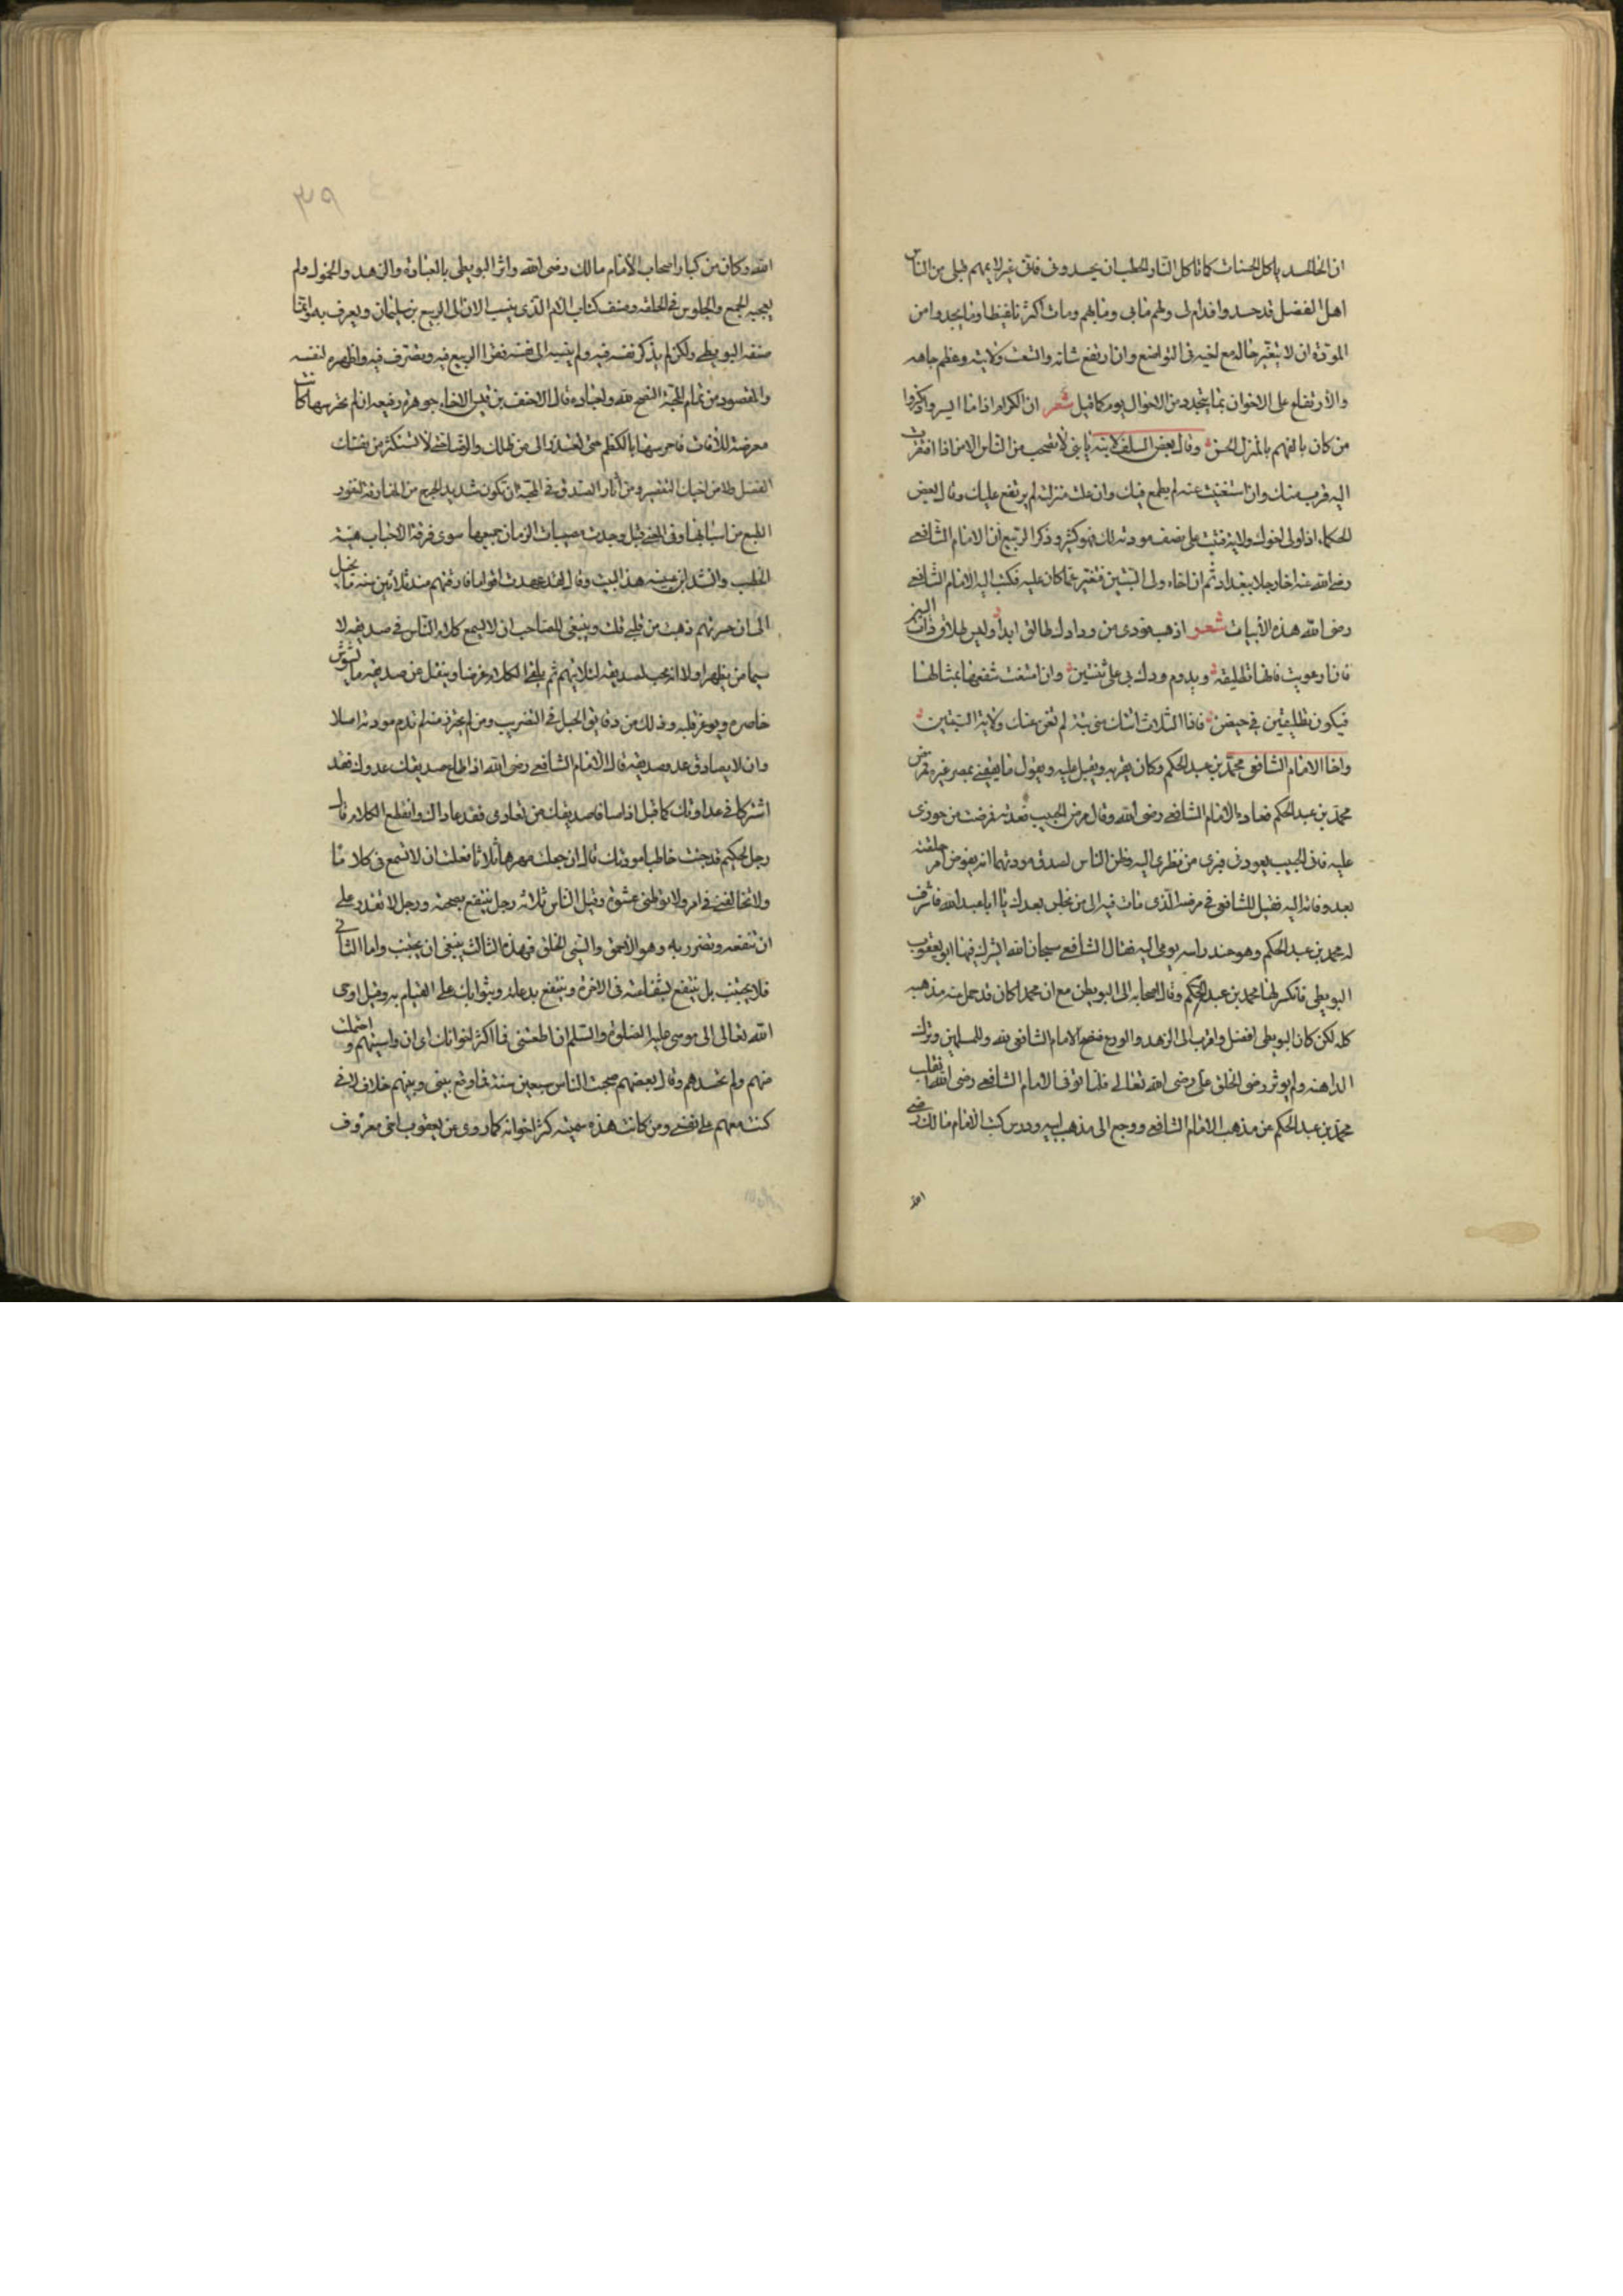 ان الحاسد ياكل الحسنات كما تاكل النار الحطب ان يحسدوني فاني غير لايمهم قبلي من الناس
اهل الفضل قد حسدوا فدام لي ولهم ما بي وما بهم ومات اكثرنا غيظا وما يجدوا من
المودة ان لا يتغير حاله مع اخيه في التواضع وان ارتفع شانه واتسعت ولايته وعظم جاهه
والارتفاع على الاخوان بما يتجدد من الاحوال لوم كما قيل شعر ان الكرام اذا ما ايسروا ذكروا
من كان يالفهم بالمنزل الخشن وقال بعض السلف لابنه يا بني لا تصحب من الناس الا من اذا افتقرت
اليه قرب منك وان استغنيت عنه لم يطمع فيك وان علت منزلته لم يرتفع عليك وقال بعض
الحكماء اذا ولى اخوك ولاية فثبت على نصف مودته لك فهو كثير وذكر الربيع ان الامام الشافعي
رضي الله عنه اخا رجلا ببغداد ثم ان اخاه ولى السيبين فتغير عما كان عليه فكتب اليه الامام الشافعي
رضي الله هذه الابيات شعر اذهب فودي من ودادك طالق ابدا وليس طلاق ذات البين
فان ارعويت فانها تطليقة ويدوم ودك بي على ثنتين وان امتنعت شفعتها بمثالها
فيكون تطليقتين في حيضن فاذا الثلاث اتتك مني بتة لم تغن عنك ولاية السيبين
واخا الامام الشافعي محمد بن عبد الحكم وكان يقربه ويقبل عليه ويقول ما يقيمني بمصر غيره فمرض
محمد بن عبد الحكم فعاده الامام الشافعي رضي الله وقال مرض الحبيب فعدته فمرضت من حذري
عليه فاتى الحبيب يعودني فبري من نظري اليه وظن الناس لصدق مودتهما انه يفوض امر حلقته
بعد وفاته اليه فقيل للشافعي في مرضه الذي مات فيه الى من نجلس بعدك يا ابا عبد الله فاشرف
له محمد بن عبد الحكم وهو عند راسه يومي اليه فقال الشافعي سبحان الله ايشك فيها ابو يعقوب
البويطي فانكسر لها محمد بن عبد الحكم وقال اصحابه الى البويطي مع ان محمدا كان قد حمل عنه مذهبه
كله لكن كان البويطي افضل واقرب الى الزهد والورع فنصح الامام الشافعي لله وللمسلمين وترك
المداهنه ولم يوثر رضى الخلق على رضى الله تعالى فلما توفي الامام الشافعي رضي الله انقلب
محمد بن عبد الحكم عن مذهب الامام الشافعي ورجع الى مذهب ابيه ودرس كتب الامام مالك رضي
الله
٣٥٩
الله وكان من كبار اصحاب الامام مالك رضي الله واثر البويطي بالعبادة والزهد والخمول ولم
يعجبه الجمع والجلوس في الحلقه وصنف كتاب الام الذي ينسب الان الى الربيع بن سليمان ويعرف به وانما
صنفه البويطي ولكن لم يذكر نفسه فيه ولم ينسبه الى نفسه فزاد الربيع فيه وتصرف فيه واظهره لنفسه
والمقصود من تمام المحبة النصح لله ولعباده قال الاحنف بن قيس الاخاء جوهرة رفيعه ان لم تحرسها كانت
معرضة للافات فاحرسها بالكظم حتى تعتذر الى من ظلمك والرضا حتى لا تستكثر من نفسك
الفضل ولا من اخيك التقصير ومن اثار الصدق في المحبة ان تكون شديد الجزع من المفارقة نفور
الطبع من اسبابها وفي المعنى قيل وجدت مصيبات الزمان جميعها سوى فرقة الاحباب هينة
الخطب وانشد ابن عيينه هذا البيت وقال لقد عهدت اقواما فارقتهم منذ ثلاثين سنه ما يخيل
الى ان حسرتهم ذهبت من قلبي وينبغي للصاحب ان لا يسمع كلام الناس في صديقه لا
سيما من يظهر اولا انه محب لصديقه لئلا يتهم ثم يلقي الكلام عرضا وينقل عن صديقه ما يشوش
خاطره ويوغر قلبه وذلك من دقايق الحيل في التضريب ومن لم يحترز منه لم تدم مودته اصلا
وان لا يصادق عدو صديقه قال الامام الشافعي رضي الله اذا اطاع صديقك عدوك فقد
اشتركا في عداوتك كما قيل اذا صافا صديقك من تعادي فقد عاداك وانقطع الكلام قال
رجل لحكيم قد جئت خاطبا مودتك قال ان جعلت مهرها ثلاثا فعلت ان لا تسمع في كلاما
ولا تخالفني في امر ولا توطني عشوة وقيل الناس ثلاثة رجل ينتفع بصحبته ورجل لا تقدر على
ان تنفعه وتضرر به وهو الاحمق والسيي الخلق فهذه الثالث ينبغي ان يجتنب واما الثاني
فلا يجتنب بل ينتفع بشفاعته في الاخرة وينتفع بدعائه وبثوابك على القيام به وقيل اوحى
الله تعالى الى موسى عليه الصلوة والسلم ان اطعتني فما اكثر اخوانك اي ان واسيتهم واحتملت
منهم ولم تحسدهم وقال بعضهم صحبت الناس سبعين سنة فما وقع بيني وبينهم خلاف لاني
كنت معهم على نفسي ومن كانت هذه شيمته كثر اخوانه كما روي عن يعقوب اخي معروف